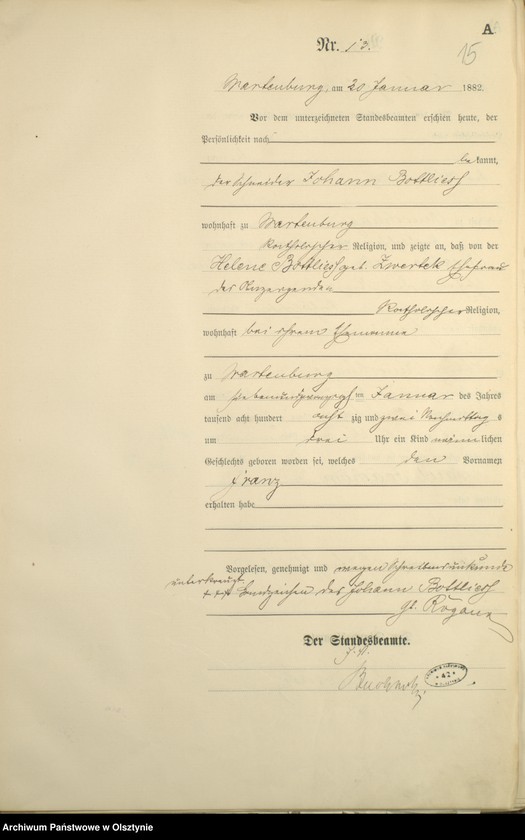 A
Nr. 13.
15
Wartenburg, am 20 Januar 1882.
Vor dem unterzeichneten Standesbeamten erschien heute, der
Persönlichkeit nach
bekannt,
der Schneider Johann Bottliesch
wohnhaft zu Wartenburg
katholischer Religion, und zeigte an, daß von der
Helene Bottliesch geb. Ehefrau
des Anzeigenden
katholischer Religion,
wohnhaft bei ihrem Ehemanne
zu Wartenburg
am ten Januar des Jahres
tausend acht hundert acht zig und zwei Nachmittag s
um drei Uhr ein Kind männlichen
Geschlechts geboren worden sei, welches den Vornamen
Franz
erhalten habe
Vorgelesen, genehmigt und wegen Schreibensunkunde
unterkreuzt
+++ Handzeichen des Johann Bottliesch
Der Standesbeamte.
Archiwum Państwowe w Olsztynie